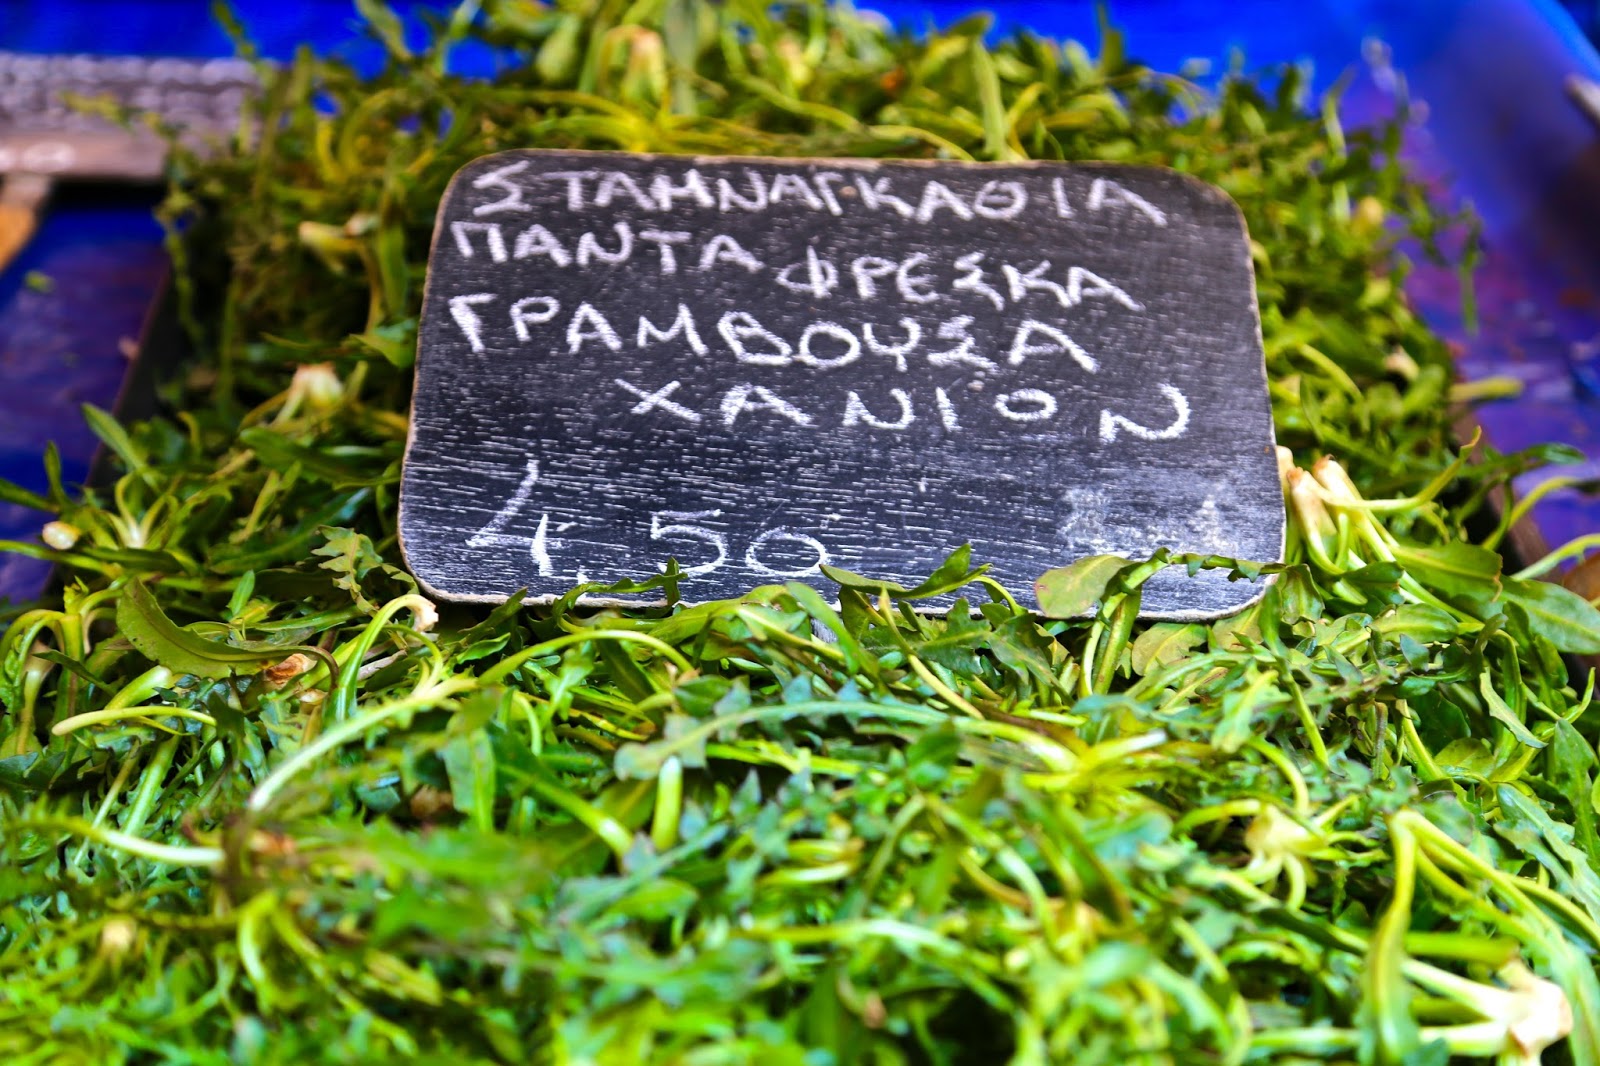 ΣΤΑΜΝΑΓΚΑΘΙΑ
ΠΑΝΤΑ ΦΡΕΣΚΑ
ΓΡΑΜΒΟΥΣΑ
ΧΑΝΙΟΝ
4,50